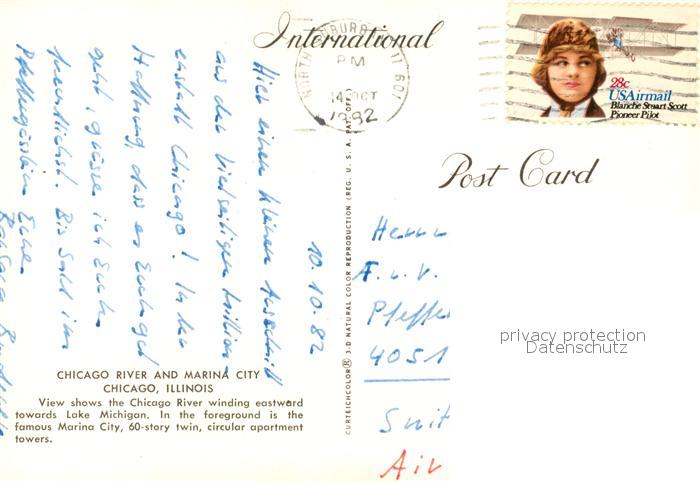 International
NORTH SUBURBAN IL 601
PM
14 OCT
1982
28c
USAirmail
Blanche Stuart Scott
Pioneer Pilot
Post Card
10.10.82
Hier einen kleinen Ausschnitt
aus der vielseitigen Million-
enstadt Chicago! In der
Hoffnung, dass es Euch gut
geht, grüsse ich Euch
freundlichst. Bis bald im
Pfeffergässlein Eure
Barbara
CURTEICHCOLOR® 3-D NATURAL COLOR REPRODUCTION (REG. U.S.A. PAT. OFF.)
Herrn
F. u. V.
Pfeffe
4051
Suit
Air
privacy protection
Datenschutz
CHICAGO RIVER AND MARINA CITY
CHICAGO, ILLINOIS
View shows the Chicago River winding eastward
towards Lake Michigan. In the foreground is the
famous Marina City, 60-story twin, circular apartment
towers.